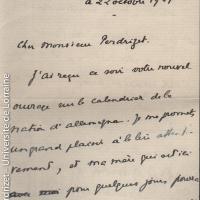 a 22 octobre 19
Cher Monsieur Perdrizet.
J'ai reçu ce soir votre nouvel
ouvrage sur le calendrier de la
nation d'allemagne. Je me promets
un grand plaisir à le lire
et ma mère qui est ici
pour quelques jours pourra
Université de Lorraine